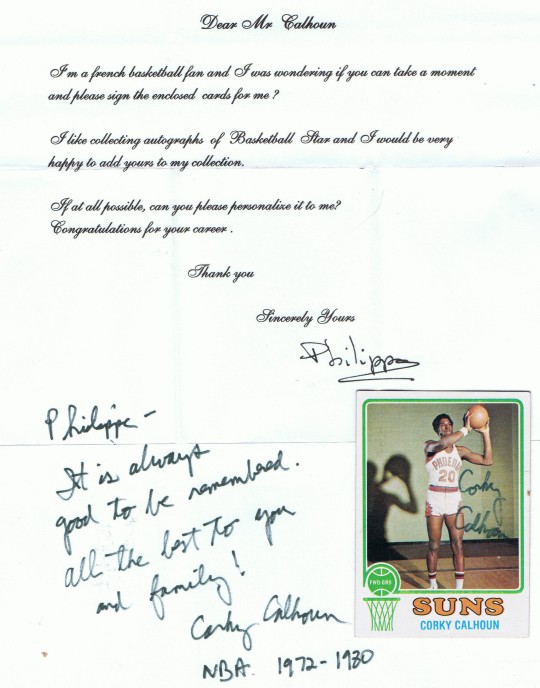 Dear Mr Calhoun
I'm a french basketball fan and I was wondering if you can take a moment
and please sign the enclosed cards for me ?
I like collecting autographs of Basketball Star and I would be very
happy to add yours to my collection.
If at all possible, can you please personalize it to me?
Congratulations for your career .
Thank you
Sincerely Yours
Philippe
Philippe -
It is always
good to be remembered.
all the best to you
and family!
Corky Calhoun
NBA 1972-1980
PHOENIX
20
Corky
Calhoun
FWD-GRD
SUNS
CORKY CALHOUN